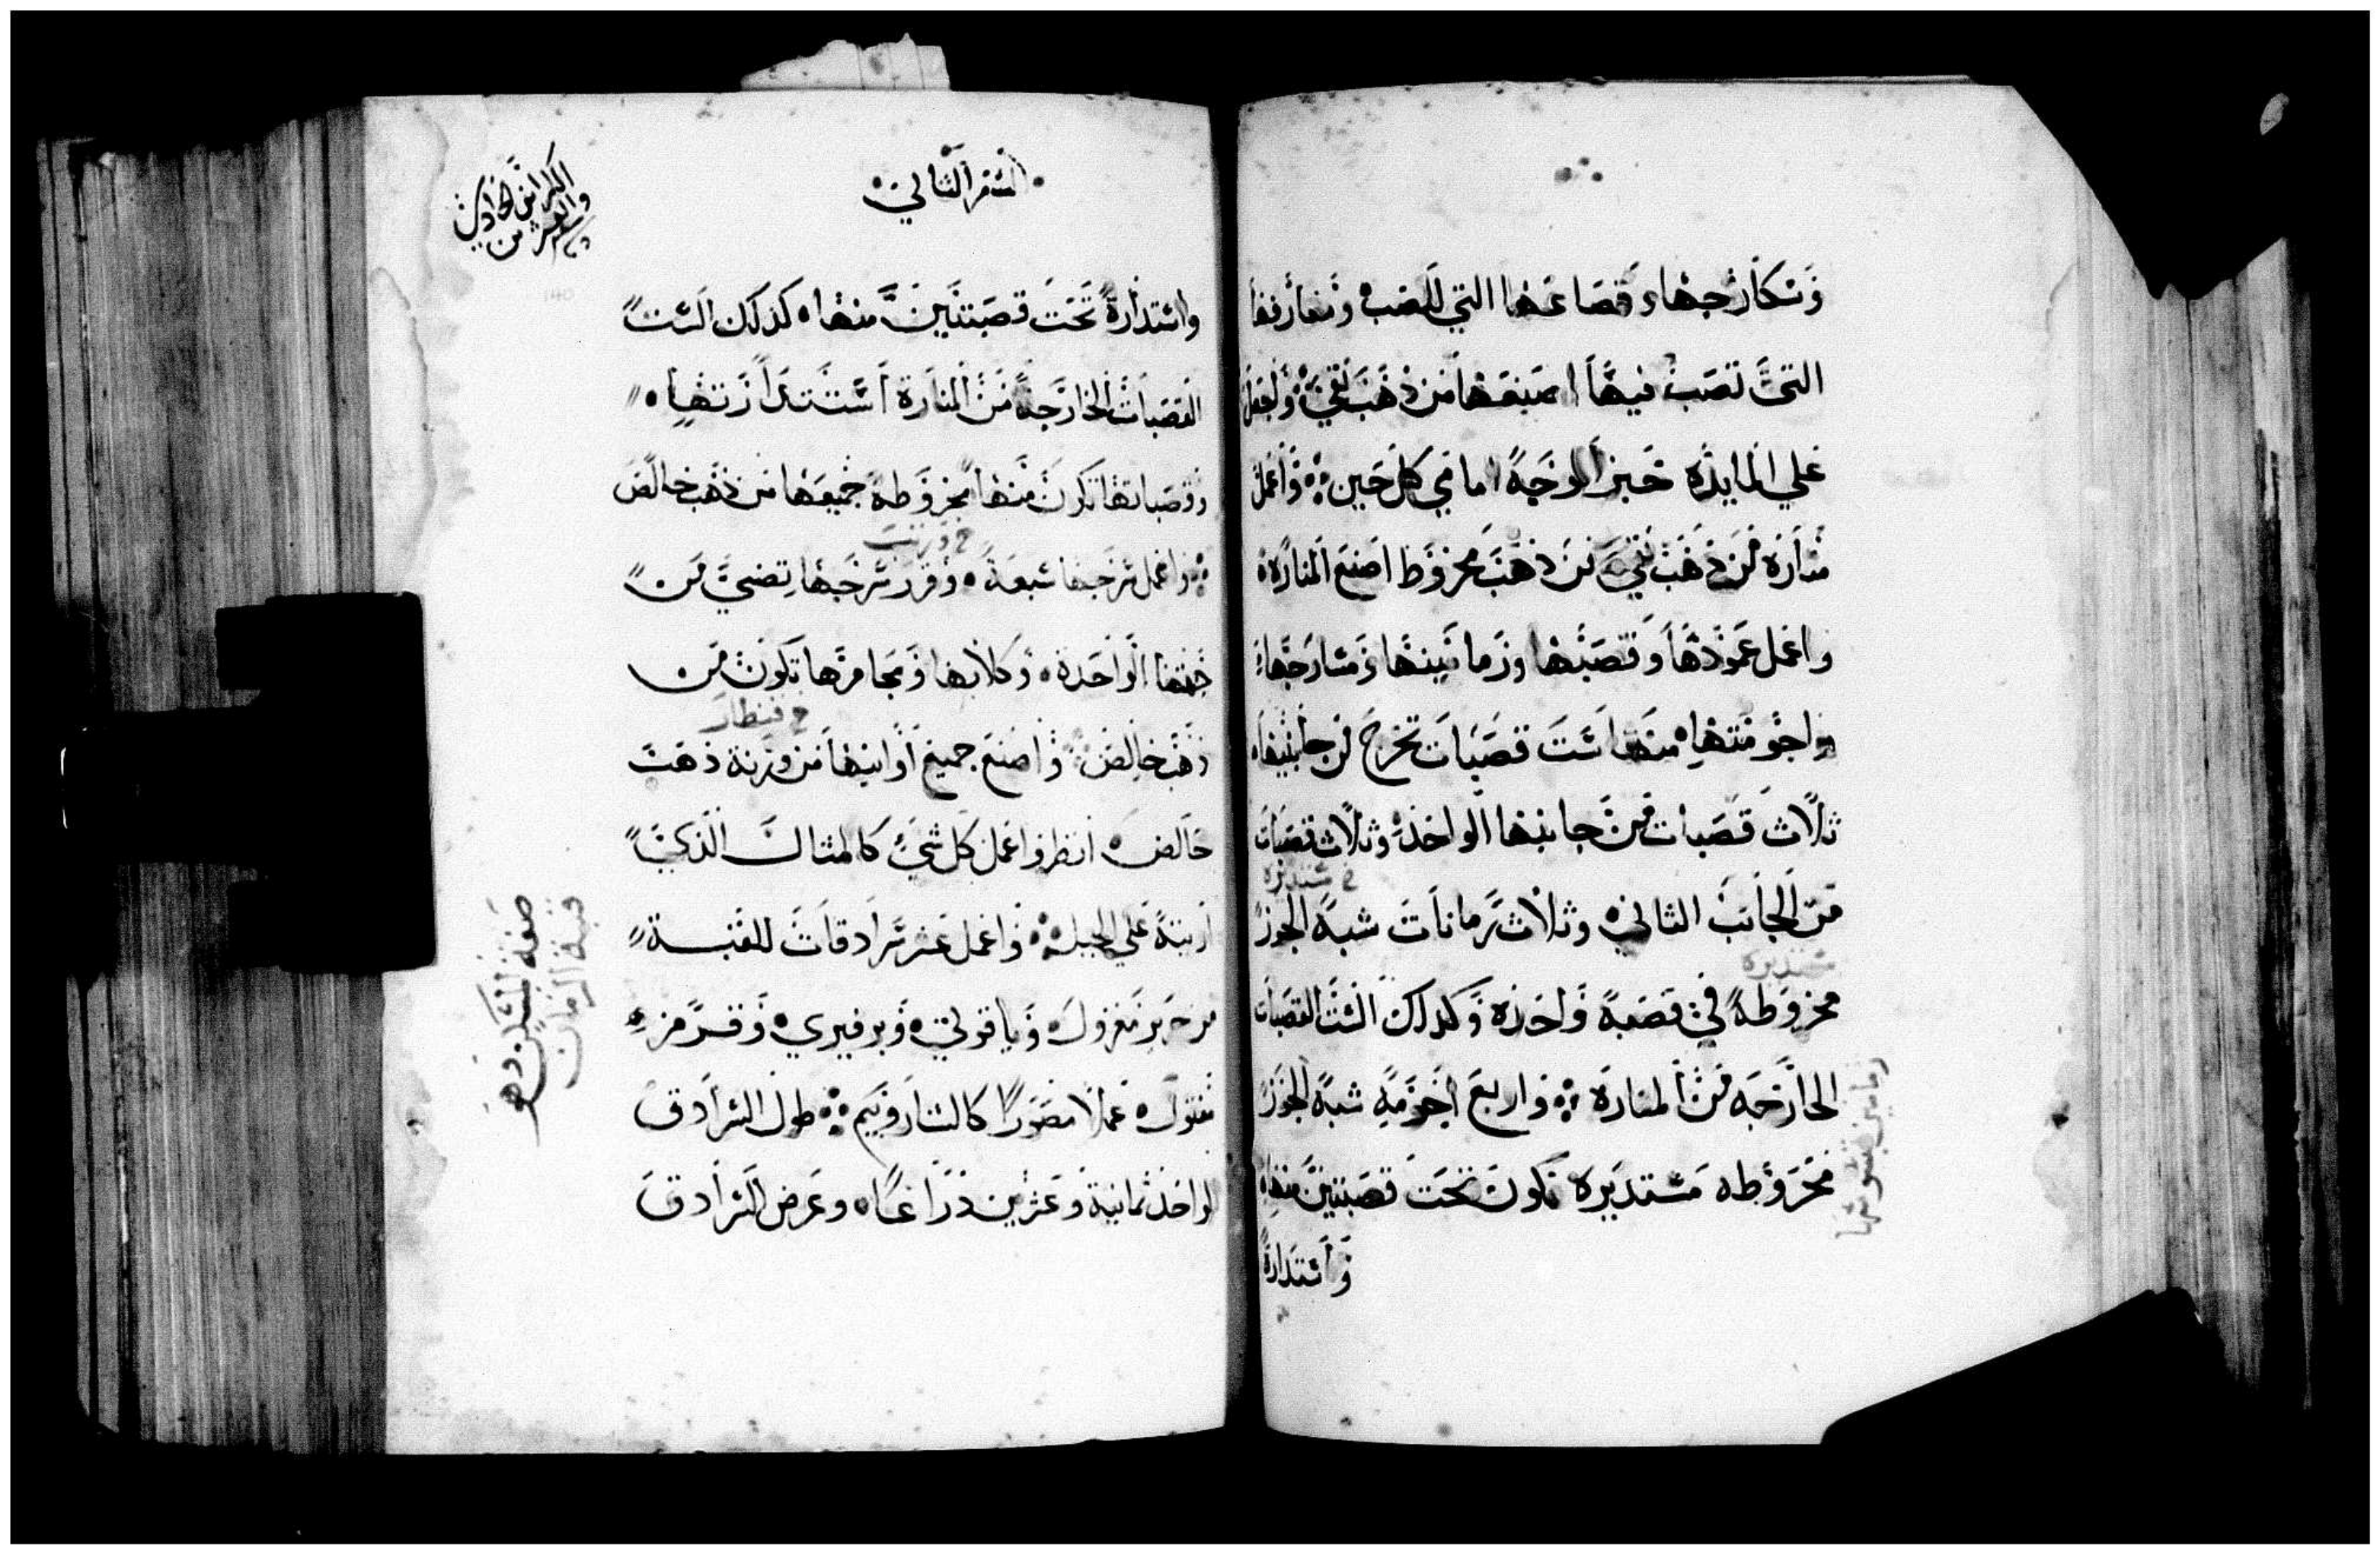 وسكارجها وقصاعها التي للصب ومغارفها
التي تصب فيها اصنعها من ذهب نقي وتجعل
علي المايده خبز الوجه امامي كل حين واعمل
منارة من ذهب نقي من ذهب مخروط اصنع المنارة
واعمل عمودها وقصبتها ورمانتينها ومسارجها
واجومتها منها ست قصبات تخرج من جانبيها
ثلاث قصبات من جانبها الواحد وثلاث قصبات
من الجانب الثاني وثلاث رمانات شبه الجوز
مستديرة
مخروطة في قصبة واحده وكذلك الست القصبات
الخارجه من المنارة واربع اجومه شبه الجوز
مخروطه مستديره تكون تحت قصبتين منها
واستدارة
السفر الثاني
الكراس الحادي
والعشرين
واستدارة تحت قصبتين منها كذلك الست
القصبات الخارجة من المنارة استدارتها
وقصباتها تكون منها مخروطة جميعها من ذهب خالص
واعمل سرجها سبعة وقرر سرجها تضي من
جهتها الواحدة وكلابها ومجامرها تكون من
خ قنطار
ذهب خالص واصنع جميع اوانيها من وزنة ذهب
خالص انظر واعمل كل شي كالمثال الذي
اريته علي الجبل واعمل عشر سرادقات للقبة
من حرير مغزول وياقوتي وبرفيري وقرمز
مفتول عملا مصورا كالشاروبيم طول السرادق
الواحد ثمانية وعشرين ذراعا وعرض السرادق
صفة المسكن وهو
قبة الزمان